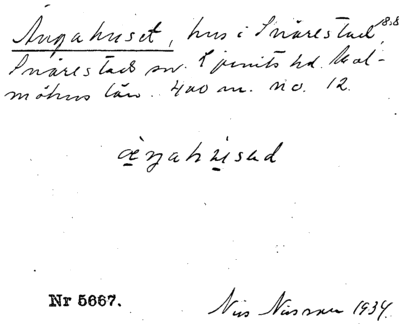 Ängahuset, hus i Snårestad, 1808
Snårestads sn. Ljunits hd. Mal-
möhus län. 400 m. no. 12.
ängahusəd
Nr 5667.
Nils Nilsson 1934.